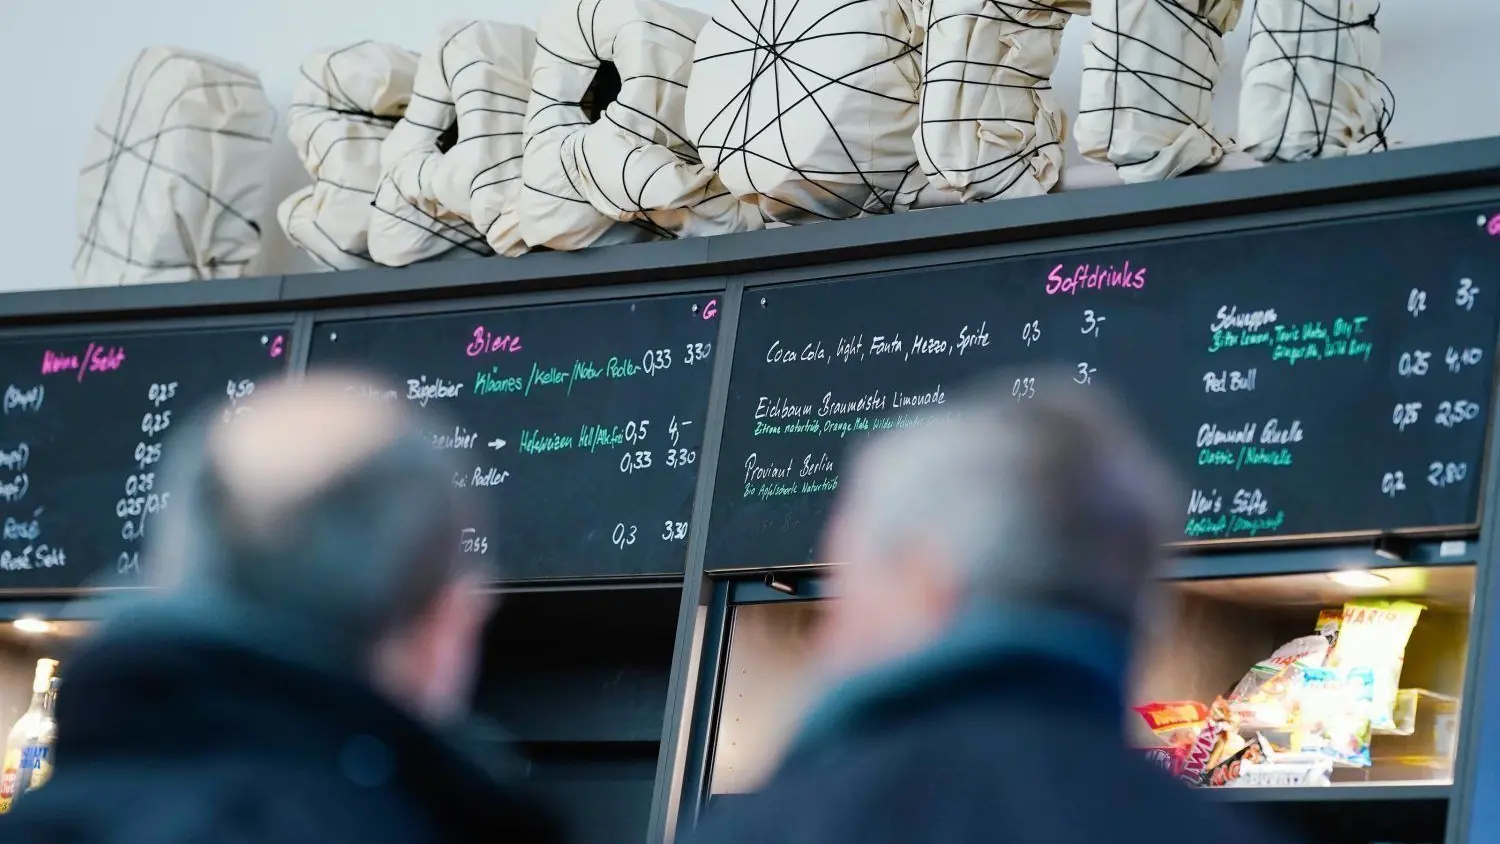 Weine/Sekt G
0,25 4,50
0,25
0,25
0,25
0,25/0,5
Rosé 0,1
Rosé Sekt 0,1
Biere G
Bügelbier Kläanes/Keller/Natur Radler 0,33 3,30
→ Hefeweizen Hell/Alk.frei 0,5 4,-
Radler 0,33 3,30
Fass 0,3 3,30
Softdrinks G
Coca Cola, light, Fanta, Mezzo, Sprite 0,3 3,-
Eichbaum Braumeister Limonade 0,33 3,-
Zitrone naturtrüb, Orange
Proviant Berlin
Bio Apfelschorle Naturtrüb
Schweppes 0,2 3,-
Bitter Lemon, Tonic Water, Dry T.
Ginger Ale, Wild Berry
Red Bull 0,25 4,40
Odenwald Quelle 0,25 2,50
Classic / Naturelle
Säfte 0,2 2,80
HARIBO
TWIX